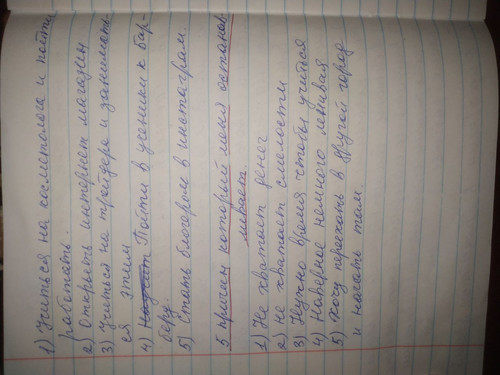 1) Учиться на косметолога и пойти
работать.
2) Открыть интернет магазин
3) Учиться на трейдера и занимать
ся этим
4) Пойти в ученики к бар-
беру.
5) Стать блогером в инстаграм.
5 причин который меня останав
ливает.
1) Не хватает денег
2) не хватает смелости
3) Нужно время чтобы учиться
4) Наверное немного ленивая
5) Хочу переехать в другой город
и начать там.